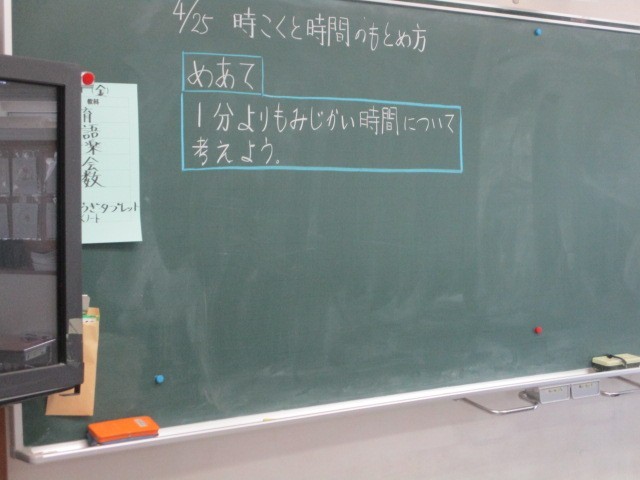 4/25 時こくと時間のもとめ方
めあて
1分よりもみじかい時間について
考えよう.
(金)
語
楽
会
数
タブレット
ノート